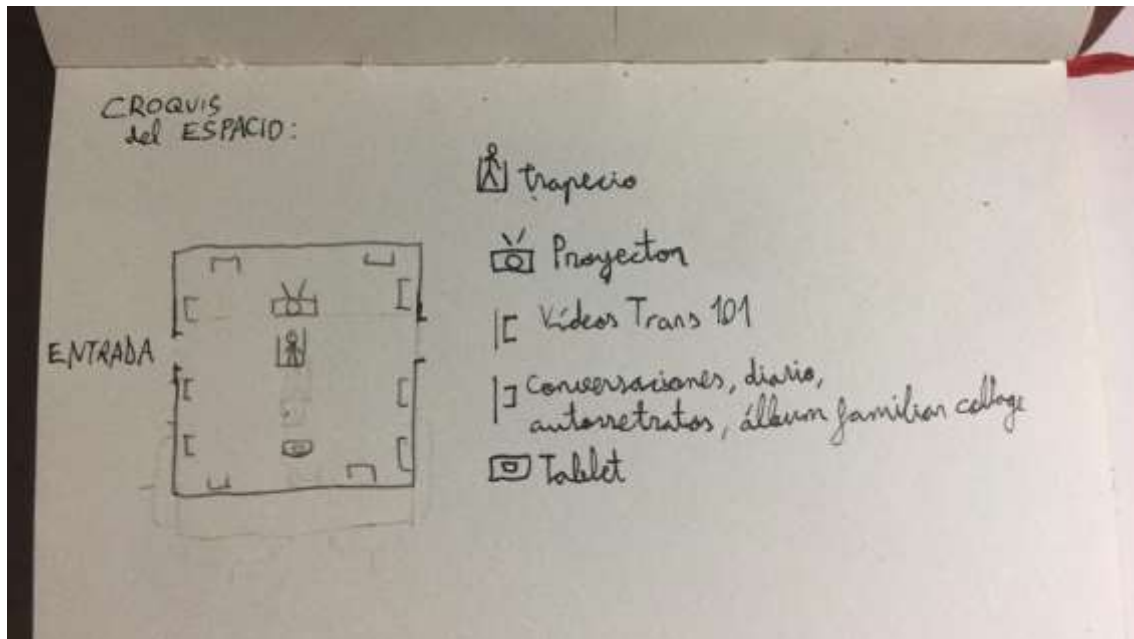 CROQUIS
del ESPACIO:
trapecio
Proyector
Vídeos Trans 101
ENTRADA
Conversaciones, diario,
autorretratos, álbum familiar collage
Tablet